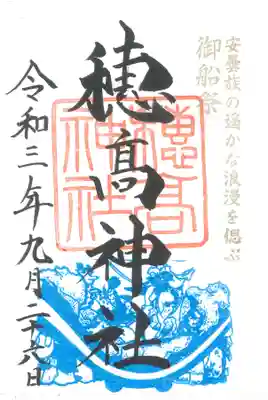 安曇族の遥かな浪漫を偲ぶ
御船祭
穂髙神社
穂高
神社
令和三年九月二十六日